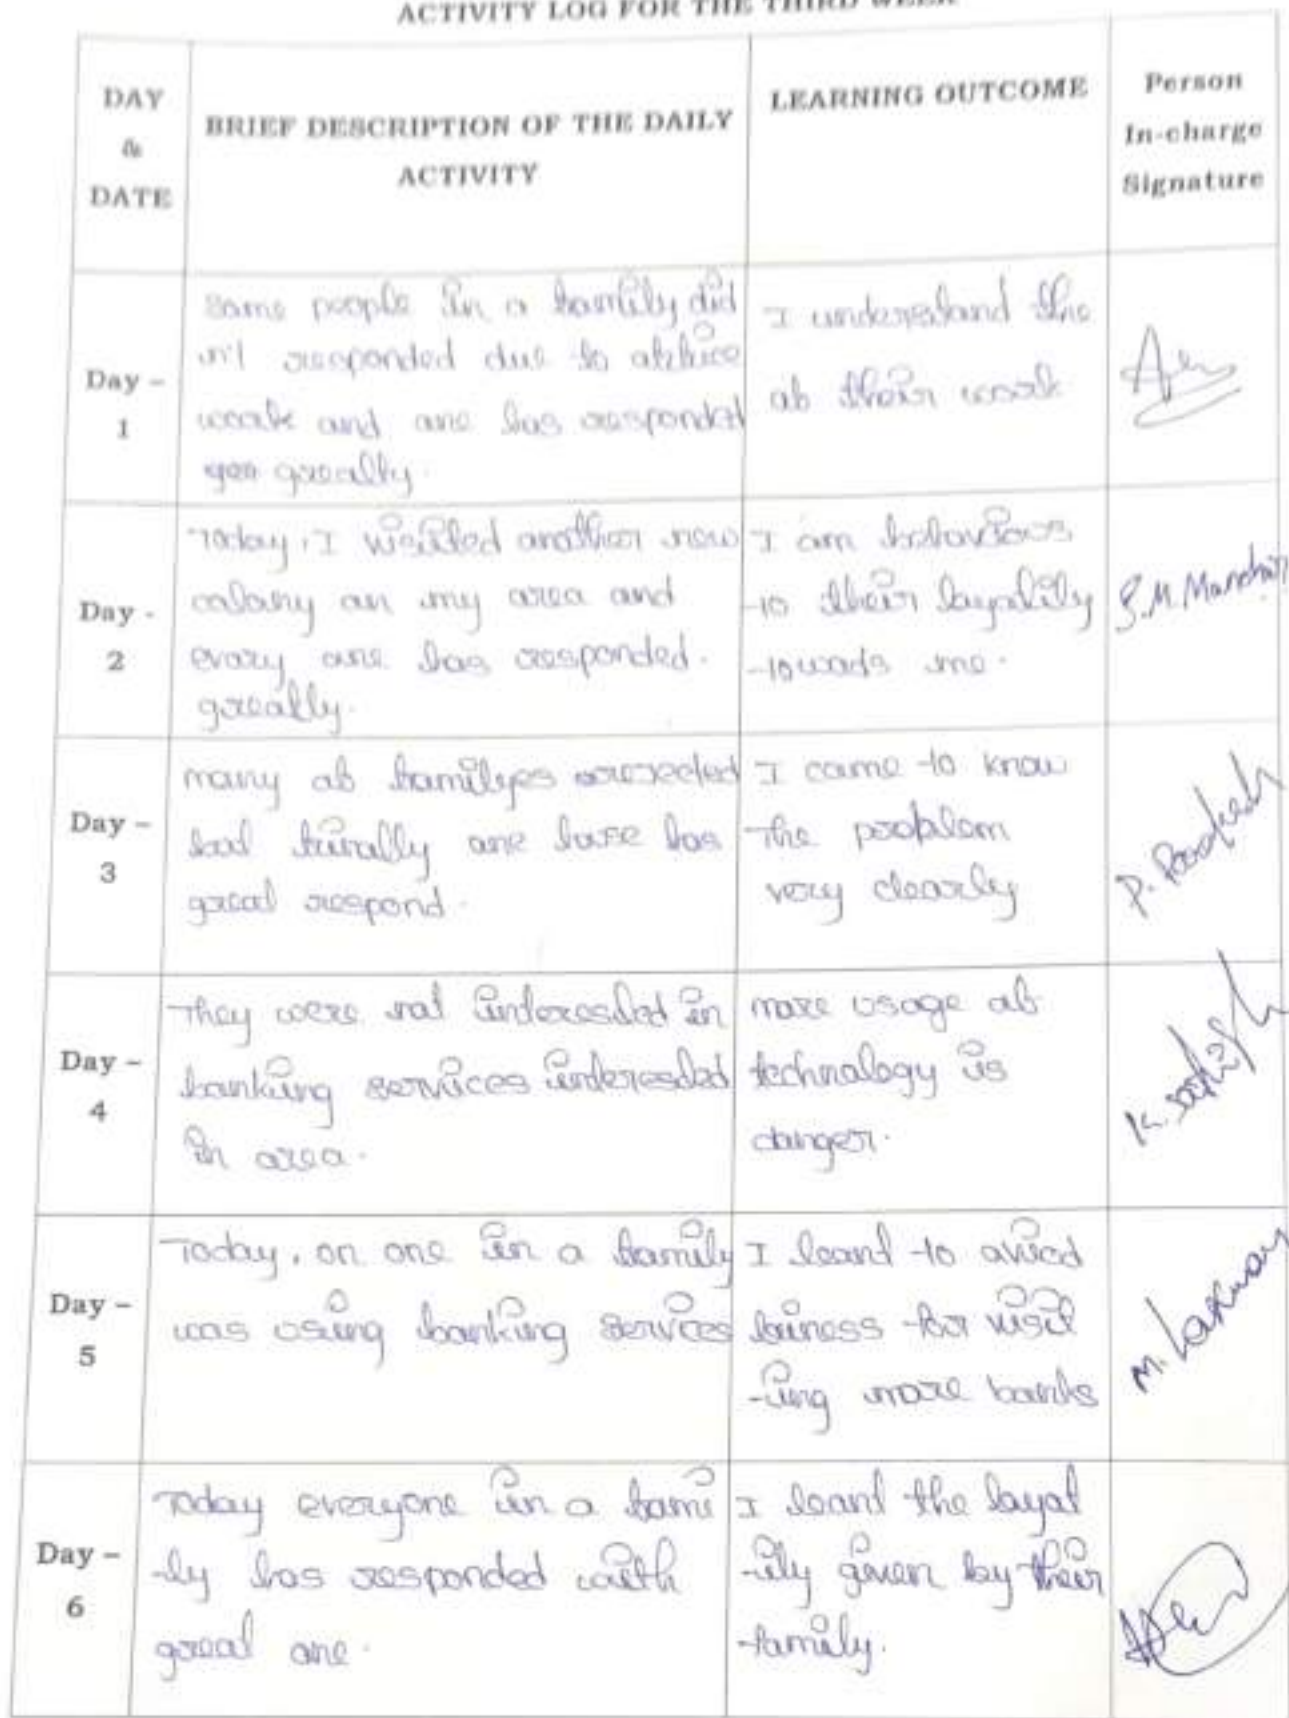 ACTIVITY LOG FOR THE THIRD WEEK
DAY & DATE
BRIEF DESCRIPTION OF THE DAILY
ACTIVITY
LEARNING OUTCOME
Person
In-charge
Signature
Day – 1
Some people in a family did
n't responded due to
work and one has responded
greatly.
I understand the
of their work
Day - 2
Today, I visited another new
colony on my area and
every one has responded.
greatly.
I am
to their loyality
towads me.
S.M. Manohar
Day – 3
many of familyes
but finally one have has
great respond.
I came to know
The problem
very clearly
Day – 4
They were not interested in
banking services interested
in area.
more usage of
technology is
danger.
K. Satish
Day – 5
Today, on one in a family
was using banking services
I leant to aviod
for visit
-ing more banks
M. Laxman
Day – 6
Today everyone in a fami
-ly has responded with
great one.
I leant the loyal
-ity given by their
family.